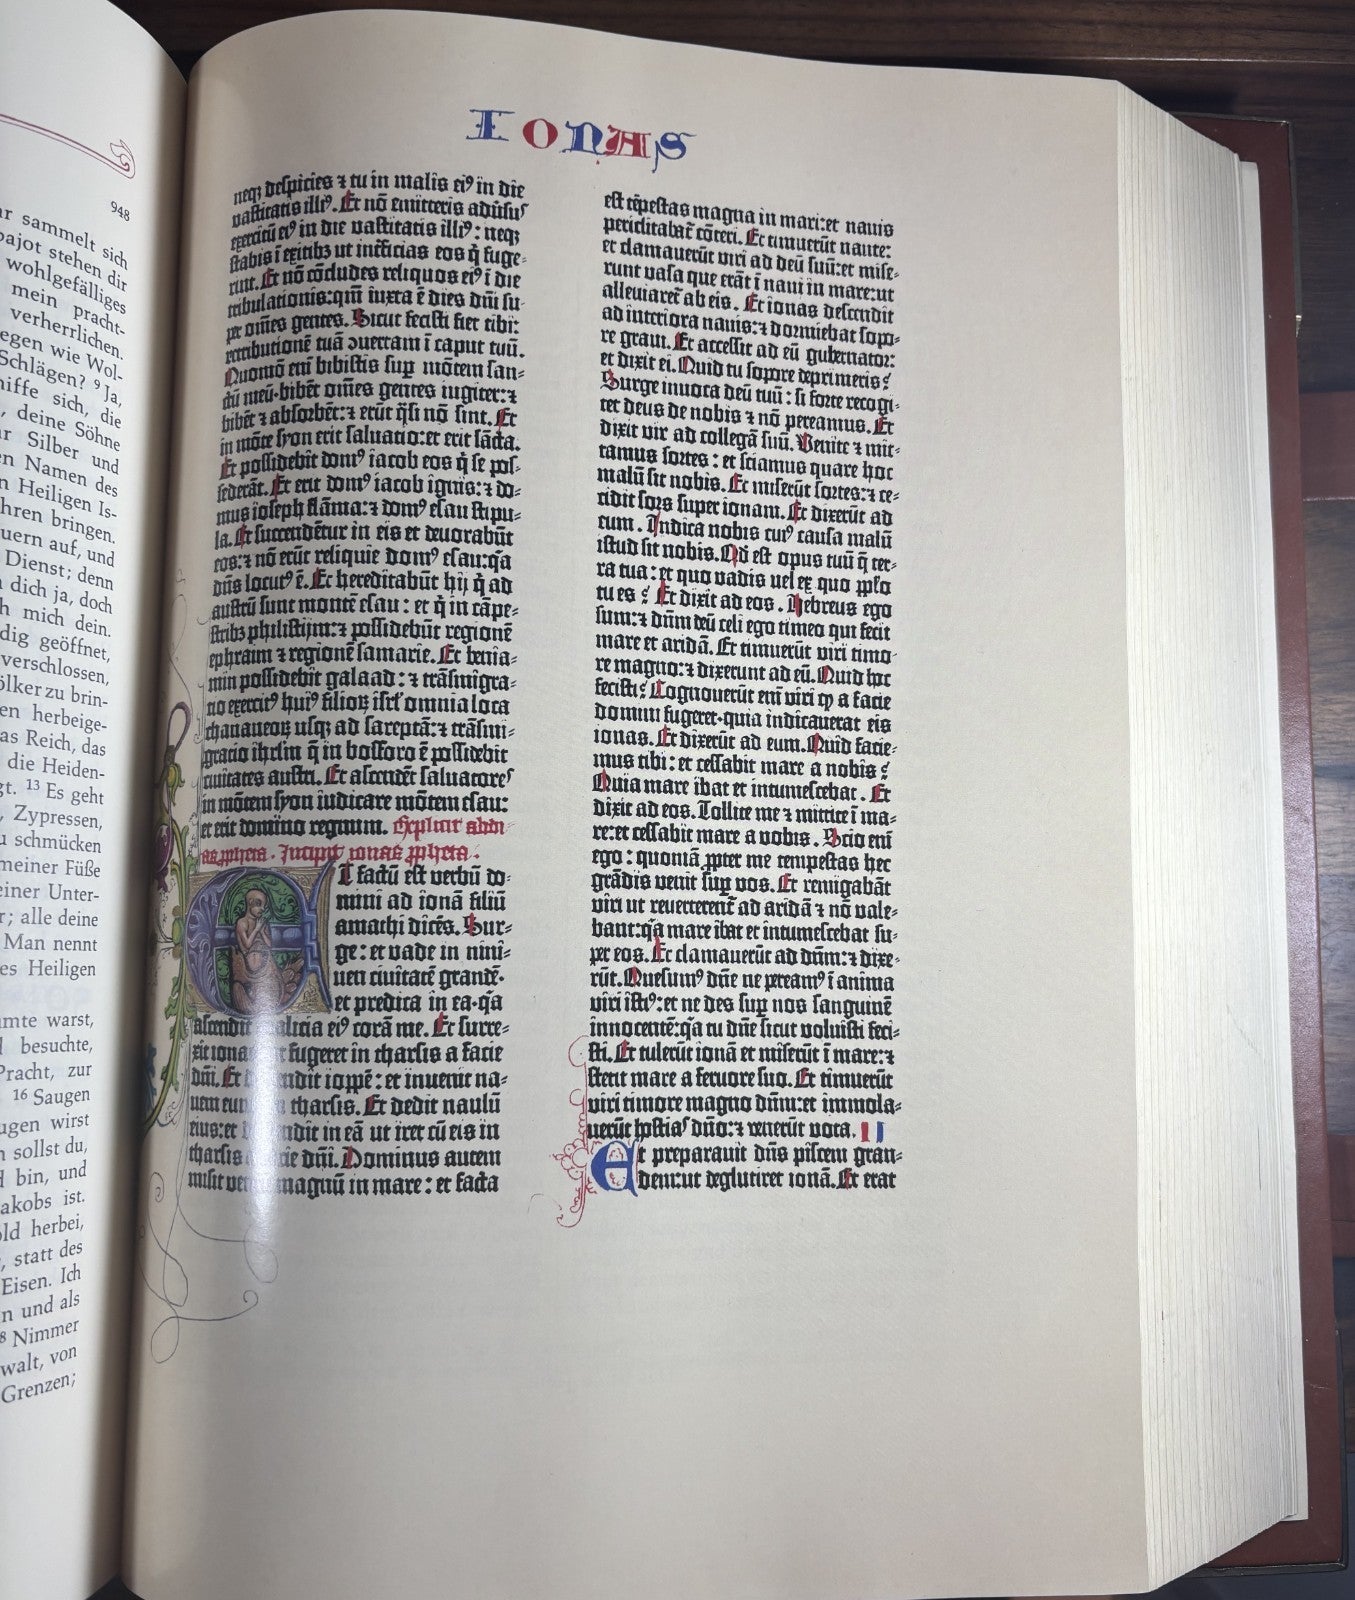 948
ar sammelt sich
bajot stehen dir
wohlgefälliges
mein pracht-
verherrlichen.
egen wie Wol-
Schlägen? 9 Ja,
hiffe sich, die
, deine Söhne
r Silber und
en Namen des
n Heiligen Is-
hren bringen.
uern auf, und
Dienst; denn
dich ja, doch
h mich dein.
dig geöffnet,
verschlossen,
ölker zu brin-
en herbeige-
as Reich, das
die Heiden-
gt. 13 Es geht
, Zypressen,
u schmücken
meiner Füße
einer Unter-
r; alle deine
Man nennt
es Heiligen
mte warst,
besuchte,
Pracht, zur
16 Saugen
ugen wirst
n sollst du,
d bin, und
akobs ist.
old herbei,
, statt des
Eisen. Ich
n und als
8 Nimmer
walt, von
Grenzen;
IONAS
neqꝫ despicies ⁊ tu in malis eiꝰ in die
vastitatis illiꝰ. Et nō emitteris adūsuꝰ
exercitū eiꝰ in die vastitatis illiꝰ: neqꝫ
stabis ī exitibꝫ ut interficias eos q̄ fuge-
rint. Et nō cōcludes reliquos eiꝰ ī die
tribulationis:qm̄ iuxta ē dies dn̄i su-
per om̄es gentes. Sicut fecisti fiet tibi:
retributionē tuā ↄvertam ī caput tuū.
Quomō em̄ bibistis sup mōtem san-
ctū meū·bibēt om̄es gentes iugiter:⁊
bibēt ⁊ absorbēt:⁊ erūt q̄si nō sint. Et
in mōte syon erit saluatio:et erit sāctꝰ.
Et possidebit domꝰ iacob eos q̄ se pos-
sederāt. Et erit domꝰ iacob ignis:⁊ do-
mus ioseph flāma:⁊ domꝰ esau stipu-
la. Et succendētur in eis et deuorabūt
eos:⁊ nō erūt reliquie domꝰ esau:qa
dn̄s locutꝰ ē. Et hereditabūt hij q̄ ad
austrū sunt montē esau: et q̄ in cāpe-
stribꝫ philistijm:⁊ possidebūt regionē
ephraim ⁊ regionē samarie. Et benia-
min possidebit galaad:⁊ trāsmigra-
tio exercitꝰ huiꝰ filioꝝ isrl omnia loca
chananeoꝝ usqꝫ ad sareptā:⁊ trāsmi-
gracio ihrlm q̄ in bosforo ē possidebit
ciuitates austri. Et ascendēt saluatores
in mōtem syon iudicare mōtem esau:
et erit domino regnum. Explicit abdi-
as ꝓpheta. Incipit ionas ꝓpheta.
Et factū est verbū do-
mini ad ionā filiū
amathi dicēs. Sur-
ge: et vade in nini-
uen ciuitatē grandē·
et predica in ea·qa
ascendit malicia eiꝰ corā me. Et surre-
xit ionas ut fugeret in tharsis a facie
dn̄i. Et descendit ioppē: et inuenit na-
uem euntem in tharsis. Et dedit naulū
eius:et descendit in eā ut iret cū eis in
tharsis a facie dn̄i. Dominus autem
misit ventū magnū in mare: et facta
est tēpestas magna in mari:et nauis
periclitabat᷑ cōteri. Et timuerūt naute:
et clamauerūt viri ad deū suū:et mise-
runt vasa que erāt ī naui in mare:ut
alleuiaret᷑ ab eis. Et ionas descendit
ad interiora nauis:⁊ dormiebat sopo-
re graui. Et accessit ad eū gubernator:
et dixit ei. Quid tu sopore deprimeris?
Surge inuoca deū tuū: si forte recogi-
tet deus de nobis ⁊ nō pereamus. Et
dixit vir ad collegā suū. Venite ⁊ mit-
tamus sortes: et sciamus quare hoc
malū sit nobis. Et miserūt sortes:⁊ ce-
cidit sors super ionam. Et dixerūt ad
eum. Indica nobis cuiꝰ causa malū
istud sit nobis. Qd̄ est opus tuū q̄ ter-
ra tua: et quo vadis vel ex quo pplo
tu es? Et dixit ad eos. Hebreus ego
sum:⁊ dn̄m deū celi ego timeo qui fecit
mare et aridā. Et timuerūt viri timo-
re magno:⁊ dixerunt ad eū. Quid hoc
fecisti? Cognouerūt em̄ viri ꝙ a facie
domini fugeret·quia indicauerat eis
ionas. Et dixerūt ad eum. Quid facie-
mus tibi: et cessabit mare a nobis?
Quia mare ibat et intumescebat. Et
dixit ad eos. Tollite me ⁊ mittite ī ma-
re:et cessabit mare a vobis. Scio em̄
ego: quoniā ꝓpter me tempestas hec
grādis venit sup vos. Et remigabāt
viri ut reuerterent᷑ ad aridā ⁊ nō vale-
bant:qa mare ibat et intumescebat su-
per eos. Et clamauerūt ad dn̄m:⁊ dixe-
rūt. Quesumꝰ dn̄e ne pereamꝰ ī anima
viri istiꝰ:et ne des sup nos sanguinē
innocentē:qa tu dn̄e sicut voluisti feci-
sti. Et tulerūt ionā et miserūt ī mare:⁊
stetit mare a feruore suo. Et timuerūt
viri timore magno dn̄m:et immola-
uerūt hostias dn̄o:⁊ vouerūt vota. II
Et preparauit dn̄s piscem gran-
dem:ut deglutiret ionā. Et erat